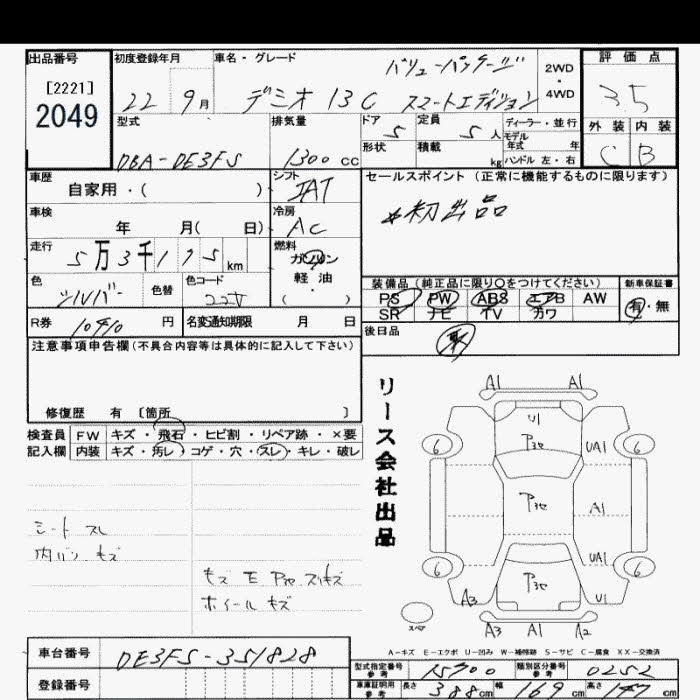 出品番号 初度登録年月 車名・グレード バリューパッケージ 2WD 評価点
[2221] 22 9月 デミオ 13C スマートエディション 4WD 35
2049 型式 排気量 ドア 5 定員 5人 ディーラー・並行 外装 内装
DBA-DE3FS 1300cc 形状 積載 kg モデル年式 年 ハンドル 左・右 C B
車歴 自家用・( ) シフト IAT セールスポイント(正常に機能するものに限ります)
車検 年 月( 日) 冷房 AC 初出品
走行 5万3千175km 燃料 ガソリン
軽油
・
( )
色 シルバー 色替 色コード 22V 装備品(純正品に限り○をつけてください) 新車保証書
PS PW ABS エアB AW 有・無
SR ナビ TV カワ
R券 10410円 名変通知期限 月 日 後日品
注意事項申告欄(不具合内容等は具体的に記入して下さい)
修復歴 有 〔箇所 〕
検査員 FW キズ・飛石・ヒビ割・リペア跡・×要
記入欄 内装 キズ・汚レ・コゲ・穴・スレ・キレ・破レ
シート スレ
内バリ キズ
キズ E Pヌセ スリキズ
ホイール キズ
リース会社出品
A1 A1
U1
6 6
UA1
A1
UA1
6 6
A3 U1
スペア A3 A1 A2
A-キズ E-エクボ U-凹み W-補修跡 S-サビ C-腐食 XX-交換済
車台番号 DE3FS-351828
型式指定番号 参考 15900 類別区分番号 参考 0252
登録番号
車庫証明用 参考 長さ 388cm 幅 169cm 高さ cm